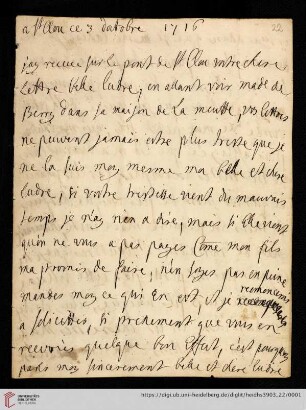 a St Clou ce 3 d'octobre 1716
22
jay receue sur le pont de St Clou vottre chere
lettre belle ludre, en allant voir made de
Berry dans sa maison de la meutte, vos lettres
ne peuvent jamais estre plus triste que je
ne la suis moy mesme ma belle et chere
ludre, si votre tristesse vient du mauvais
temps je n'ay rien a dire, mais si elle vient
qu'on ne vous a pas payes come mon fils
m'a promis de faire, n'en soyes pas en peine
mandes moy ce qui en est et je
recomenceres
a soliciter, si prestement que vous en
recevres quelque bon effect, c'est pourquoy
parles moy sincerement belle et chere ludre
UNIVERSITÄTS-
BIBLIOTHEK
HEIDELBERG
https://digi.ub.uni-heidelberg.de/diglit/heidhs3903_22/0001